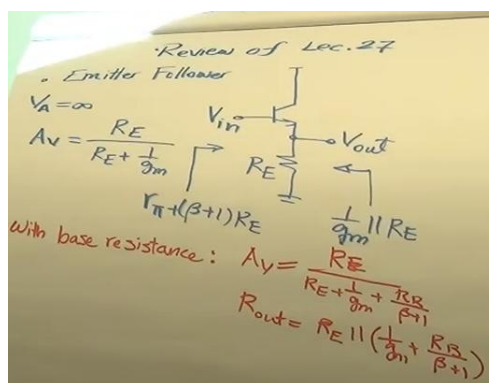 ·Review of Lec. 27
• Emitter Follower
V_A = ∞
A_v = R_E / (R_E + 1/g_m)
V_in
V_out
R_E
r_π + (β+1) R_E
1/g_m || R_E
With base resistance: A_v = R_E / (R_E + 1/g_m + R_B/(β+1))
R_out = R_E || (1/g_m + R_B/(β+1))